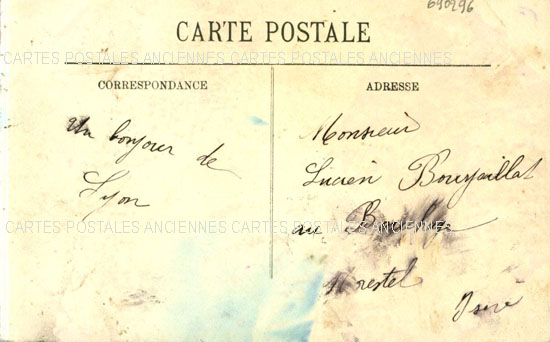 690296
CARTE POSTALE
CARTES POSTALES ANCIENNES CARTES POSTALES ANCIENNES
CORRESPONDANCE
ADRESSE
Un bonjour de
Lyon
Monsieur
Lucien Bourjaillat
au
Morestel
Isère
CARTES POSTALES ANCIENNES CARTES POSTALES ANCIENNES